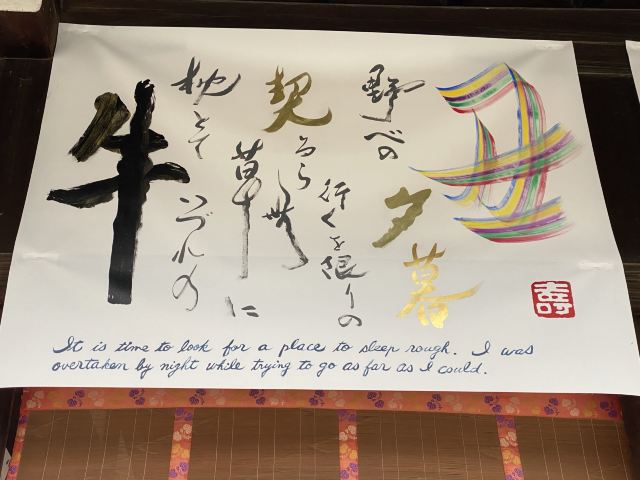 牛
枕とていづれの
草に
契るらむ
行くを限りの
野べの
夕暮
丑
壽
It is time to look for a place to sleep rough. I was
overtaken by night while trying to go as far as I could.